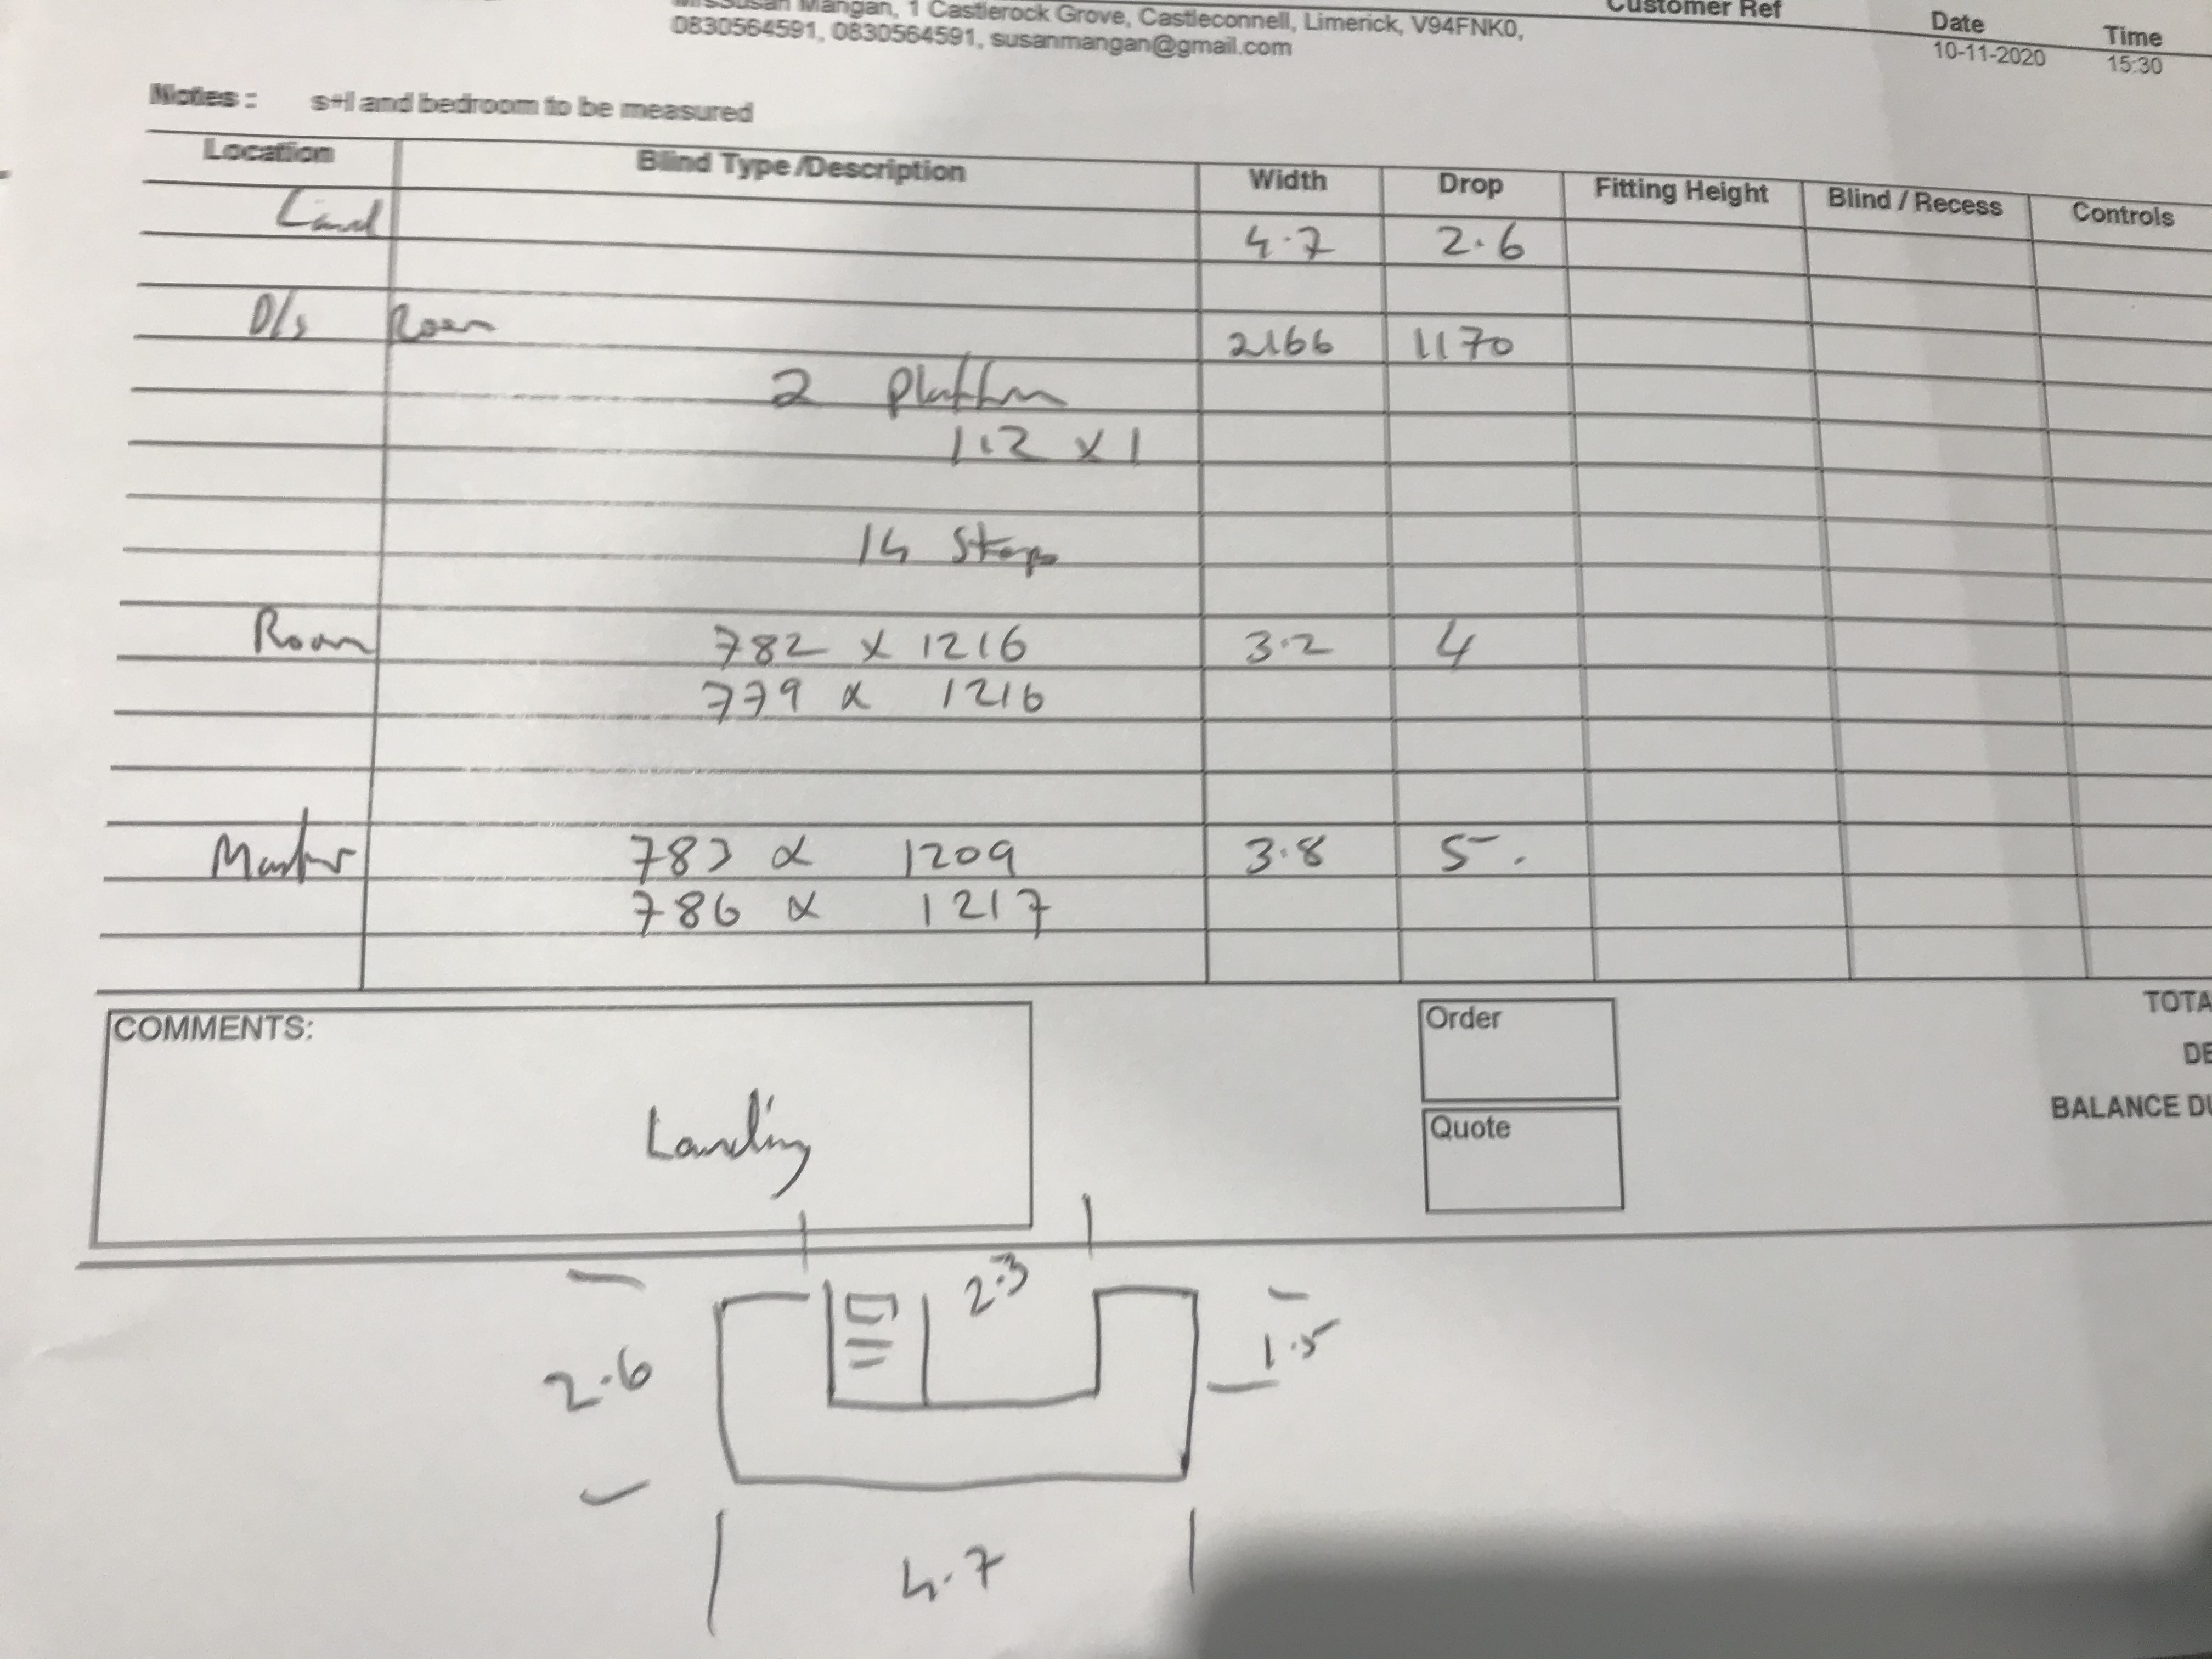 MrsSusan Mangan, 1 Castlerock Grove, Castleconnell, Limerick, V94FNK0,
0830564591, 0830564591, susanmangan@gmail.com
Customer Ref
Date
Time
10-11-2020
15:30
Notes : s+l and bedroom to be measured
Location Blind Type /Description Width Drop Fitting Height Blind / Recess Controls
Land 4.7 2.6
D/s Room 2166 1170
2 Platform
1.2 x 1
14 Steps
Room 782 x 1216 3.2 4
779 x 1216
Master 783 x 1209 3.8 5.
786 x 1217
COMMENTS:
Order
TOTA
DE
Landing
Quote
BALANCE DU
2.3
2.6
1.5
4.7